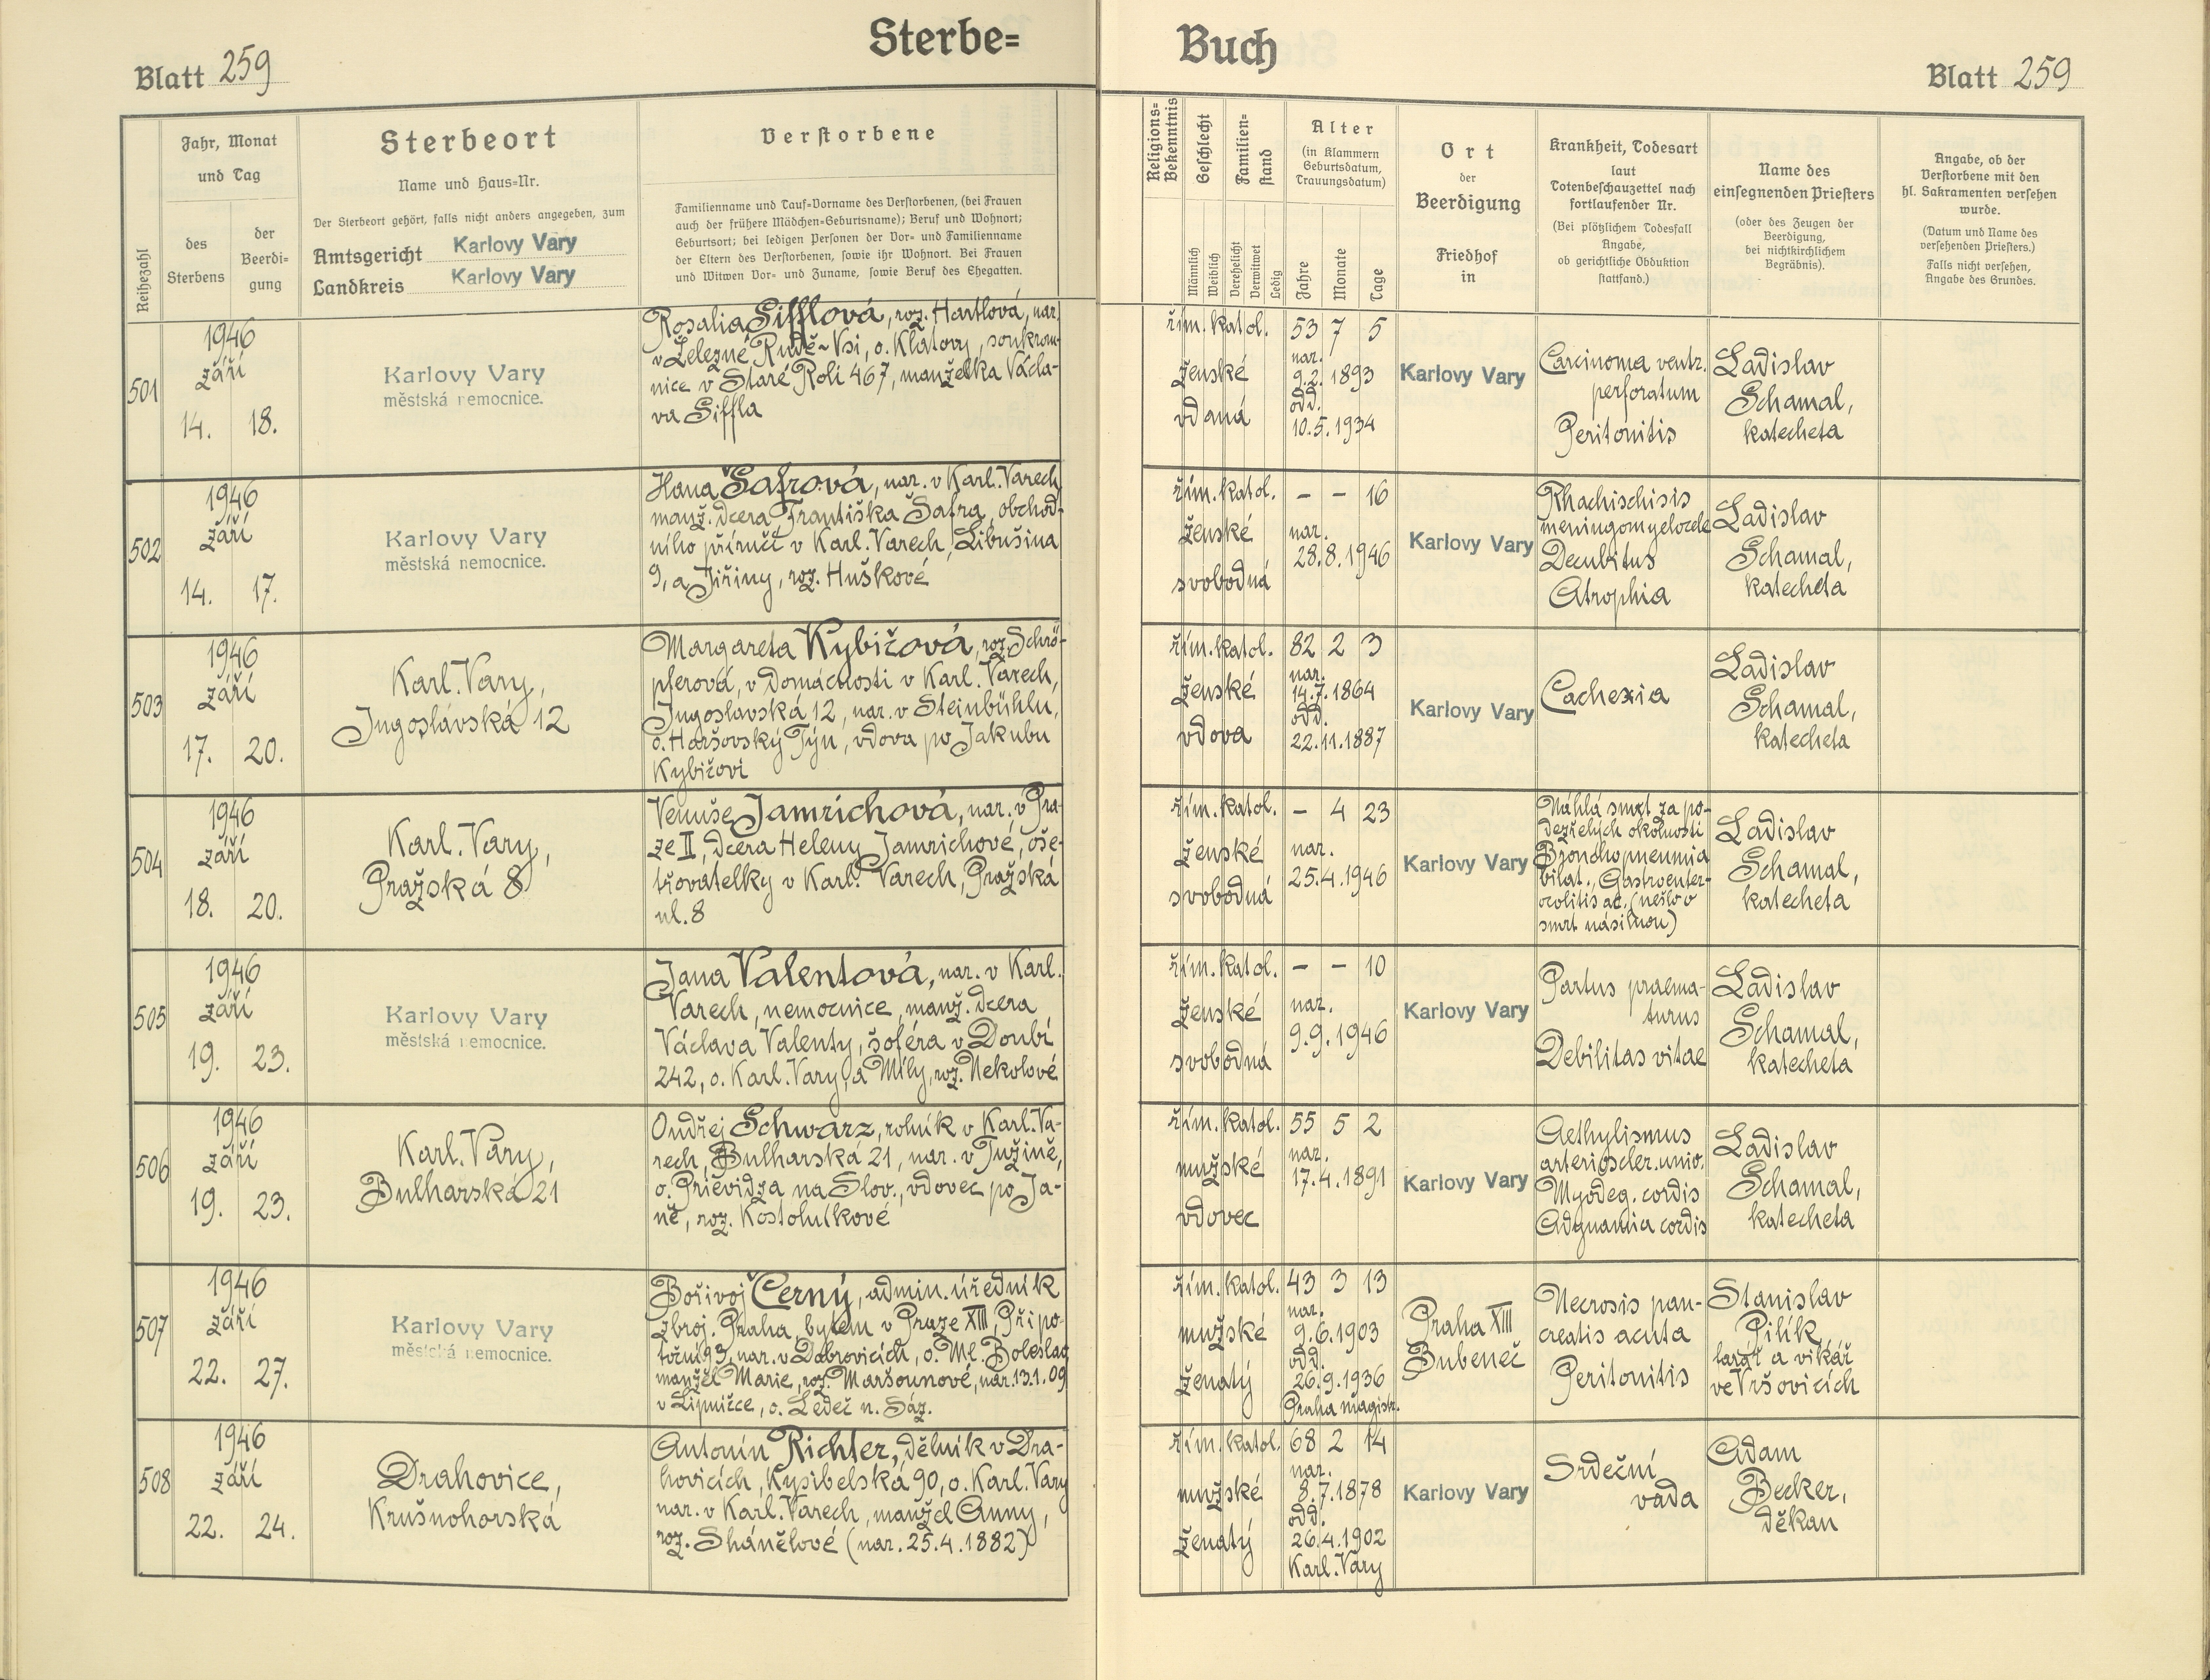 Sterbe=
Buch
Blatt 259
Blatt 259
Reihezahl
Jahr, Monat
und Tag
des
Sterbens
der
Beerdi-
gung
Sterbeort
Name und Haus=Nr.
Der Sterbeort gehört, falls nicht anders angegeben, zum
Amtsgericht Karlovy Vary
Landkreis Karlovy Vary
Verstorbene
Familienname und Tauf=Vorname des Verstorbenen, (bei Frauen
auch der frühere Mädchen=Geburtsname); Beruf und Wohnort;
Geburtsort; bei ledigen Personen der Vor= und Familienname
der Eltern des Verstorbenen, sowie ihr Wohnort. Bei Frauen
und Witwen Vor= und Zuname, sowie Beruf des Ehegatten.
Religions=
Bekenntnis
Geschlecht
Männlich
Weiblich
Familien=
stand
Verehelicht
Verwitwet
Ledig
Alter
(in Klammern
Geburtsdatum,
Trauungsdatum)
Jahre
Monate
Tage
Ort
der
Beerdigung
Friedhof
in
Krankheit, Todesart
laut
Totenbeschauzettel nach
fortlaufender Nr.
(Bei plötzlichem Todesfall
Angabe,
ob gerichtliche Obduktion
stattfand.)
Name des
einsegnenden Priesters
(oder des Zeugen der
Beerdigung,
bei nichtkirchlichem
Begräbnis).
Angabe, ob der
Verstorbene mit den
hl. Sakramenten versehen
wurde.
(Datum und Name des
versehenden Priesters.)
Falls nicht versehen,
Angabe des Grundes.
501
1946
září
14. 18.
Karlovy Vary
městská nemocnice.
Rosalia Sifflová, roz. Hartlová, nar.
v Železné Rudě-Vsi, o. Klatovy, soukrom-
nice v Staré Roli 467, manželka Václa-
va Siffla
řím. katol.
ženské
vdaná
53 7 5
nar.
9.2.1893
odd.
10.5.1934
Karlovy Vary
Carcinoma ventr.
perforatum
Peritonitis
Ladislav
Schamal,
katecheta
502
1946
září
14. 17.
Karlovy Vary
městská nemocnice.
Hana Šafrová, nar. v Karl. Varech
manž. dcera Františka Šafra, obchod-
ního příručí v Karl. Varech, Libušina
9, a Jiřiny, roz. Huškové
řím. katol.
ženské
svobodná
- - 16
nar.
28.8.1946
Karlovy Vary
Rhachischisis
meningomyelocele
Decubitus
Atrophia
Ladislav
Schamal,
katecheta
503
1946
září
17. 20.
Karl. Vary,
Jugoslávská 12
Margareta Kybičová, roz. Schrö-
pferová, v domácnosti v Karl. Varech,
Jugoslavská 12, nar. v Steinbühlu,
o. Horšovský Týn, vdova po Jakubu
Kybičovi
řím. katol.
ženské
vdova
82 2 3
nar.
14.7.1864
odd.
22.11.1887
Karlovy Vary
Cachexia
Ladislav
Schamal,
katecheta
504
1946
září
18. 20.
Karl. Vary,
Pražská 8
Venuše Jamrichová, nar. v Pra-
ze II, dcera Heleny Jamrichové, oše-
třovatelky v Karl. Varech, Pražská
ul. 8
řím. katol.
ženské
svobodná
- 4 23
nar.
25.4.1946
Karlovy Vary
Náhlá smrt za po-
dezřelých okolností
Bronchopneumia
bilat., Gastroenter-
ocolitis ac. (nešlo o
smrt násilnou)
Ladislav
Schamal,
katecheta
505
1946
září
19. 23.
Karlovy Vary
městská nemocnice.
Jana Valentová, nar. v Karl.
Varech, nemocnice, manž. dcera
Václava Valenty, šoféra v Doubí
242, o. Karl. Vary, a Míly, roz. Nekolové
řím. katol.
ženské
svobodná
- - 10
nar.
9.9.1946
Karlovy Vary
Partus praema-
turus
Debilitas vitae
Ladislav
Schamal,
katecheta
506
1946
září
19. 23.
Karl. Vary,
Bulharská 21
Ondřej Schwarz, rolník v Karl. Va-
rech, Bulharská 21, nar. v Tužině,
o. Prievidza na Slov., vdovec po Ja-
ně, roz. Kostolníkové
řím. katol.
mužské
vdovec
55 5 2
nar.
17.4.1891
Karlovy Vary
Aethylismus
arterioscler. univ.
Myodeg. cordis
Adynamia cordis
Ladislav
Schamal,
katecheta
507
1946
září
22. 27.
Karlovy Vary
městská nemocnice.
Bořivoj Černý, admin. úředník
zbroj. Praha, bytem v Praze XIII, Přípo-
toční 93, nar. v Dobrovicích, o. Ml. Boleslav
manžel Marie, roz. Maršounové, nar. 13.1.09
v Lipničce, o. Ledeč n. Sáz.
řím. katol.
mužské
ženatý
43 3 13
nar.
9.6.1903
odd.
26.9.1936
Praha magistr.
Praha XIII
Bubeneč
Necrosis pan-
creatis acuta
Peritonitis
Stanislav
Pilík,
farář a vikář
ve Vršovicích
508
1946
září
22. 24.
Drahovice,
Krušnohorská
Antonín Richter, dělník v Dra-
hovicích, Kysibelská 90, o. Karl. Vary
nar. v Karl. Varech, manžel Anny,
roz. Shánělové (nar. 25.4.1882)
řím. katol.
mužské
ženatý
68 2 14
nar.
8.7.1878
odd.
26.4.1902
Karl. Vary
Karlovy Vary
Srdeční
vada
Adam
Becker,
děkan